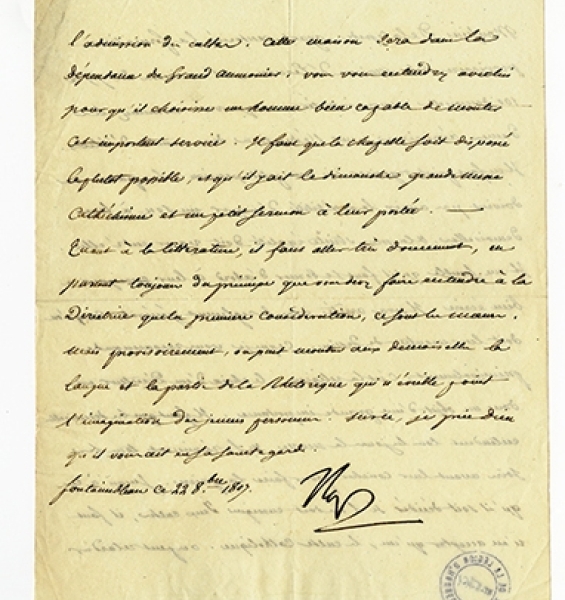 l'admission du culte. Cette maison sera dans la
dépendance du Grand Aumonier. vous vous entendrez avec lui
pour qu'il choisisse un homme bien capable de monter
cet important service. Il faut que la chapelle soit disposé
le plutot possible, et qu'il y ait le dimanche grande messe
Cathéchisme et un petit sermon à leur portée. —
Quant à la littérature, il faut aller très doucement, en
partant toujours du principe que vous devez faire entendre à la
Directrice que la première considération, ce sont les mœurs.
mais provisoirement, on peut montrer aux demoiselles la
langue et la partie de la Rhétorique qui n'éveille point
l'imagination des jeunes personnes. Sur ce, je prie Dieu
qu'il vous ait en sa sainte garde.
fontainebleau ce 22 8.bre 1807.
Nap